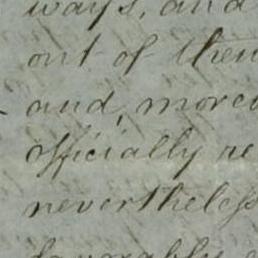 ways, and
out of them
and, moreo
officially re
nevertheless
favorably